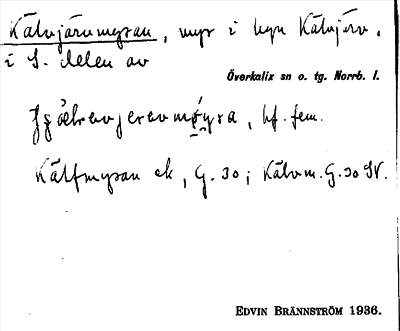 Kälvjärvmyran, myr i byn Kälvjärv,
i S. delen av
Överkalix sn o. tg. Norrb. l.
, bf. fem.
Kälfmyran ek, G. 30; Kälvm. G. 30 SV.
EDVIN BRÄNNSTRÖM 1936.